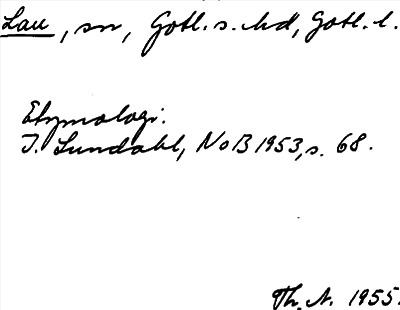 Lau, sn, Gotl. s. hd, Gotl. l.
Etymologi.
I. Lundahl, NoB 1953, s. 68.
Th. A. 1955.